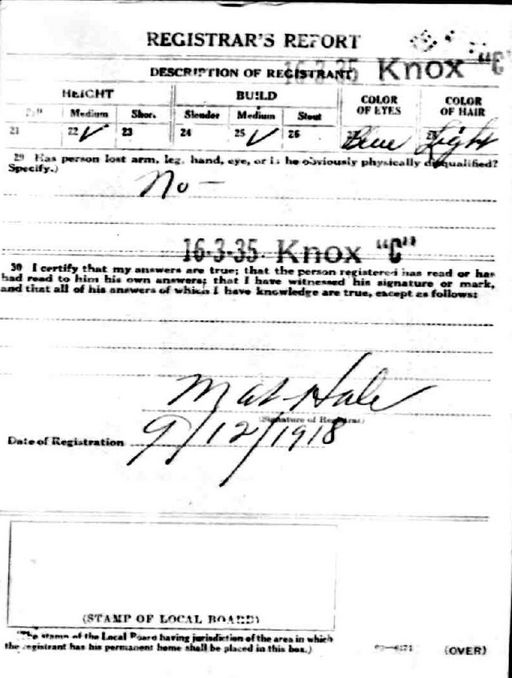 REGISTRAR'S REPORT
16-3-35 Knox "C"
DESCRIPTION OF REGISTRANT
HEIGHT BUILD COLOR OF EYES COLOR OF HAIR
Tall Medium Short Slender Medium Stout
21 22 ✓ 23 24 25 ✓ 26 Blue Light
29 Has person lost arm, leg, hand, eye, or is he obviously physically disqualified?
Specify.)
No —
16-3-35 Knox "C"
30 I certify that my answers are true; that the person registered has read or has
had read to him his own answers; that I have witnessed his signature or mark,
and that all of his answers of which I have knowledge are true, except as follows:
Hale
(Signature of Registrar)
Date of Registration 9/12/1918
(STAMP OF LOCAL BOARD)
(The stamp of the Local Board having jurisdiction of the area in which
the registrant has his permanent home shall be placed in this box.)
(OVER)